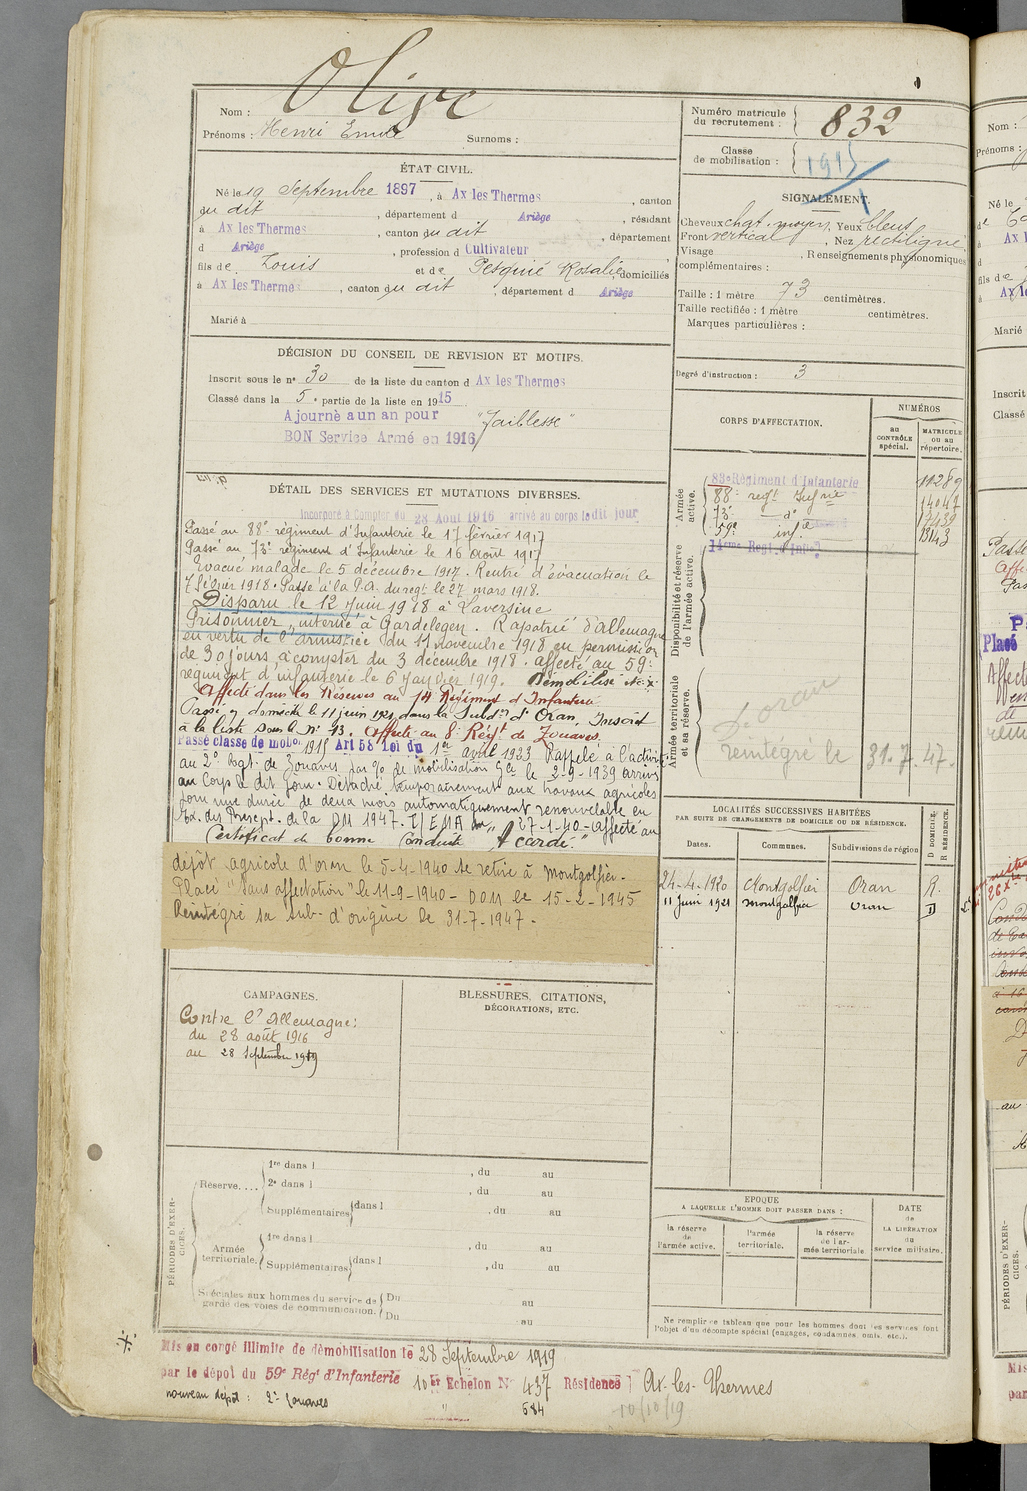 Olive
Nom :
Prénoms : Henri Emile
Surnoms :
Numéro matricule du recrutement : 832
Classe de mobilisation : 1915
ÉTAT CIVIL.
Né le 19 Septembre 1897, à Ax les Thermes, canton
du dit, département d Ariège, résidant
à Ax les Thermes, canton du dit, département
d Ariège, profession d Cultivateur
fils de Louis et de Pesquié Rosalie, domiciliés
à Ax les Therme, canton du dit, département d Ariège
Marié à
SIGNALEMENT.
Cheveux chat. moyen, Yeux bleus
Front vertical, Nez rectiligne
Visage , Renseignements physionomiques
complémentaires :
Taille : 1 mètre 73 centimètres.
Taille rectifiée : 1 mètre centimètres.
Marques particulières :
Degré d'instruction : 3
DÉCISION DU CONSEIL DE REVISION ET MOTIFS.
Inscrit sous le n° 30 de la liste du canton d Ax les Thermes
Classé dans la 5e partie de la liste en 1915
Ajourné a un an pour "Faiblesse"
BON Service Armé en 1916
DÉTAIL DES SERVICES ET MUTATIONS DIVERSES.
Incorporé à Compter du 28 Aout 1916 arrivé au corps le dit jour
Passé au 88e régiment d'Infanterie le 17 février 1917
Passé au 73e régiment d'Infanterie le 16 Août 1917
Evacué malade le 5 décembre 1917. Rentré d'évacuation le
7 février 1918. Passé à la P.A. du regt le 27 mars 1918.
Disparu le 12 Juin 1918 à Laversine
Prisonnier interné à Gardelegen. Rapatrié d'Allemagne
en vertu de l'armistice du 11 novembre 1918 en permission
de 30 jours à compter du 3 décembre 1918. affecté au 59e
régiment d'infanterie le 6 Janvier 1919. Démobilisé
Affecté dans les Réserves au 14 Régiment d'Infanterie
Passé, domicile le 11 juin 1921, dans la Subdon d'Oran, Inscrit
à la liste sous le N° 13. Affecté au 8e Régt de Zouaves.
Passé classe de mobon 1915 Art 58 loi du 1er avril 1923 Rappelé à l'activité
au 2e Regt de Zouaves par % de mobilisation Gle le 2-9-1939 arrivé
au Corps le dit jour. Détaché temporairement aux travaux agricoles
pour une durée de deux mois automatiquement renouvelable en
Ex. des Prescpt. de la DM 1947. I/EMA du 27-1-40 - affecté au
Certificat de bonne Conduite "Accordé."
dépôt agricole d'oran le 5-4-1940 se retire à Montgolfier.
Placé "Sans affectation" le 11-9-1940 - DOM le 15-2-1945
Réintégré sa sub. d'origine le 31-7-1947.
CORPS D'AFFECTATION.
NUMÉROS
au CONTRÔLE spécial.
MATRICULE ou au répertoire.
Armée active.
83e Régiment d'Infanterie 11289
88e regt Infrie 14047
73e do 17439
59e infie 13143
14eme Regt d'Infie
Disponibilité et réserve de l'armée active.
Armée territoriale et sa réserve.
D. oran
reintégré le 31.7.47.
LOCALITÉS SUCCESSIVES HABITÉES
PAR SUITE DE CHANGEMENTS DE DOMICILE OU DE RÉSIDENCE.
Dates. Communes. Subdivisions de région D DOMICILE. R RÉSIDENCE.
24-4-1920 Montgolfier Oran R.
11 Juin 1921 Montgolfier Oran D
CAMPAGNES.
Contre l'Allemagne :
du 28 août 1916
au 28 Septembre 1919
BLESSURES, CITATIONS,
DÉCORATIONS, ETC.
PÉRIODES D'EXERCICES.
Réserve....
1re dans l , du au
2e dans l , du au
Supplémentaires dans l , du au
Armée territoriale.
1re dans l , du au
Supplémentaires dans l , du au
Spéciales aux hommes du service de garde des voies de communication.
Du au
Du au
EPOQUE
A LAQUELLE L'HOMME DOIT PASSER DANS :
la réserve de l'armée active.
l'armée territoriale.
la réserve de l'armée territoriale
DATE de LA LIBÉRATION du service militaire.
Ne remplir ce tableau que pour les hommes dont les services font
l'objet d'un décompte spécial (engagés, condamnés, omis, etc.).
Mis en congé illimité de démobilisation le 28 Septembre 1919
par le dépôt du 59e Régt d'Infanterie 10er Echelon N° 437 Résidence Ax-les-Thermes
nouveau dépôt : 2e Zouaves
584
10/10/19